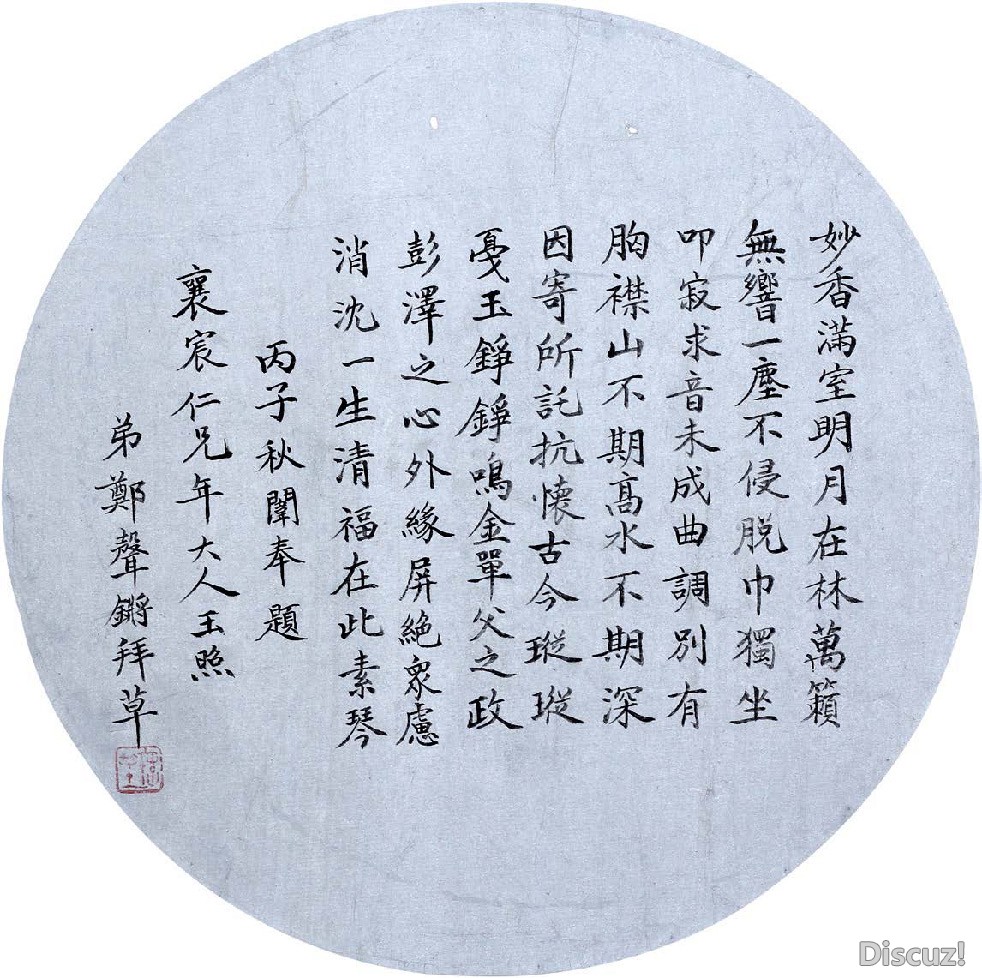 妙香滿室明月在林萬籟
無響一塵不侵脫巾獨坐
叩寂求音未成曲調別有
胸襟山不期高水不期深
因寄所託抗懷古今瑽瑽
戛玉錚錚鳴金單父之政
彭澤之心外緣屏絕眾慮
消沈一生清福在此素琴
丙子秋闈奉題
襄宸仁兄年大人玉照
弟鄭聲鏘拜草
Discuz!